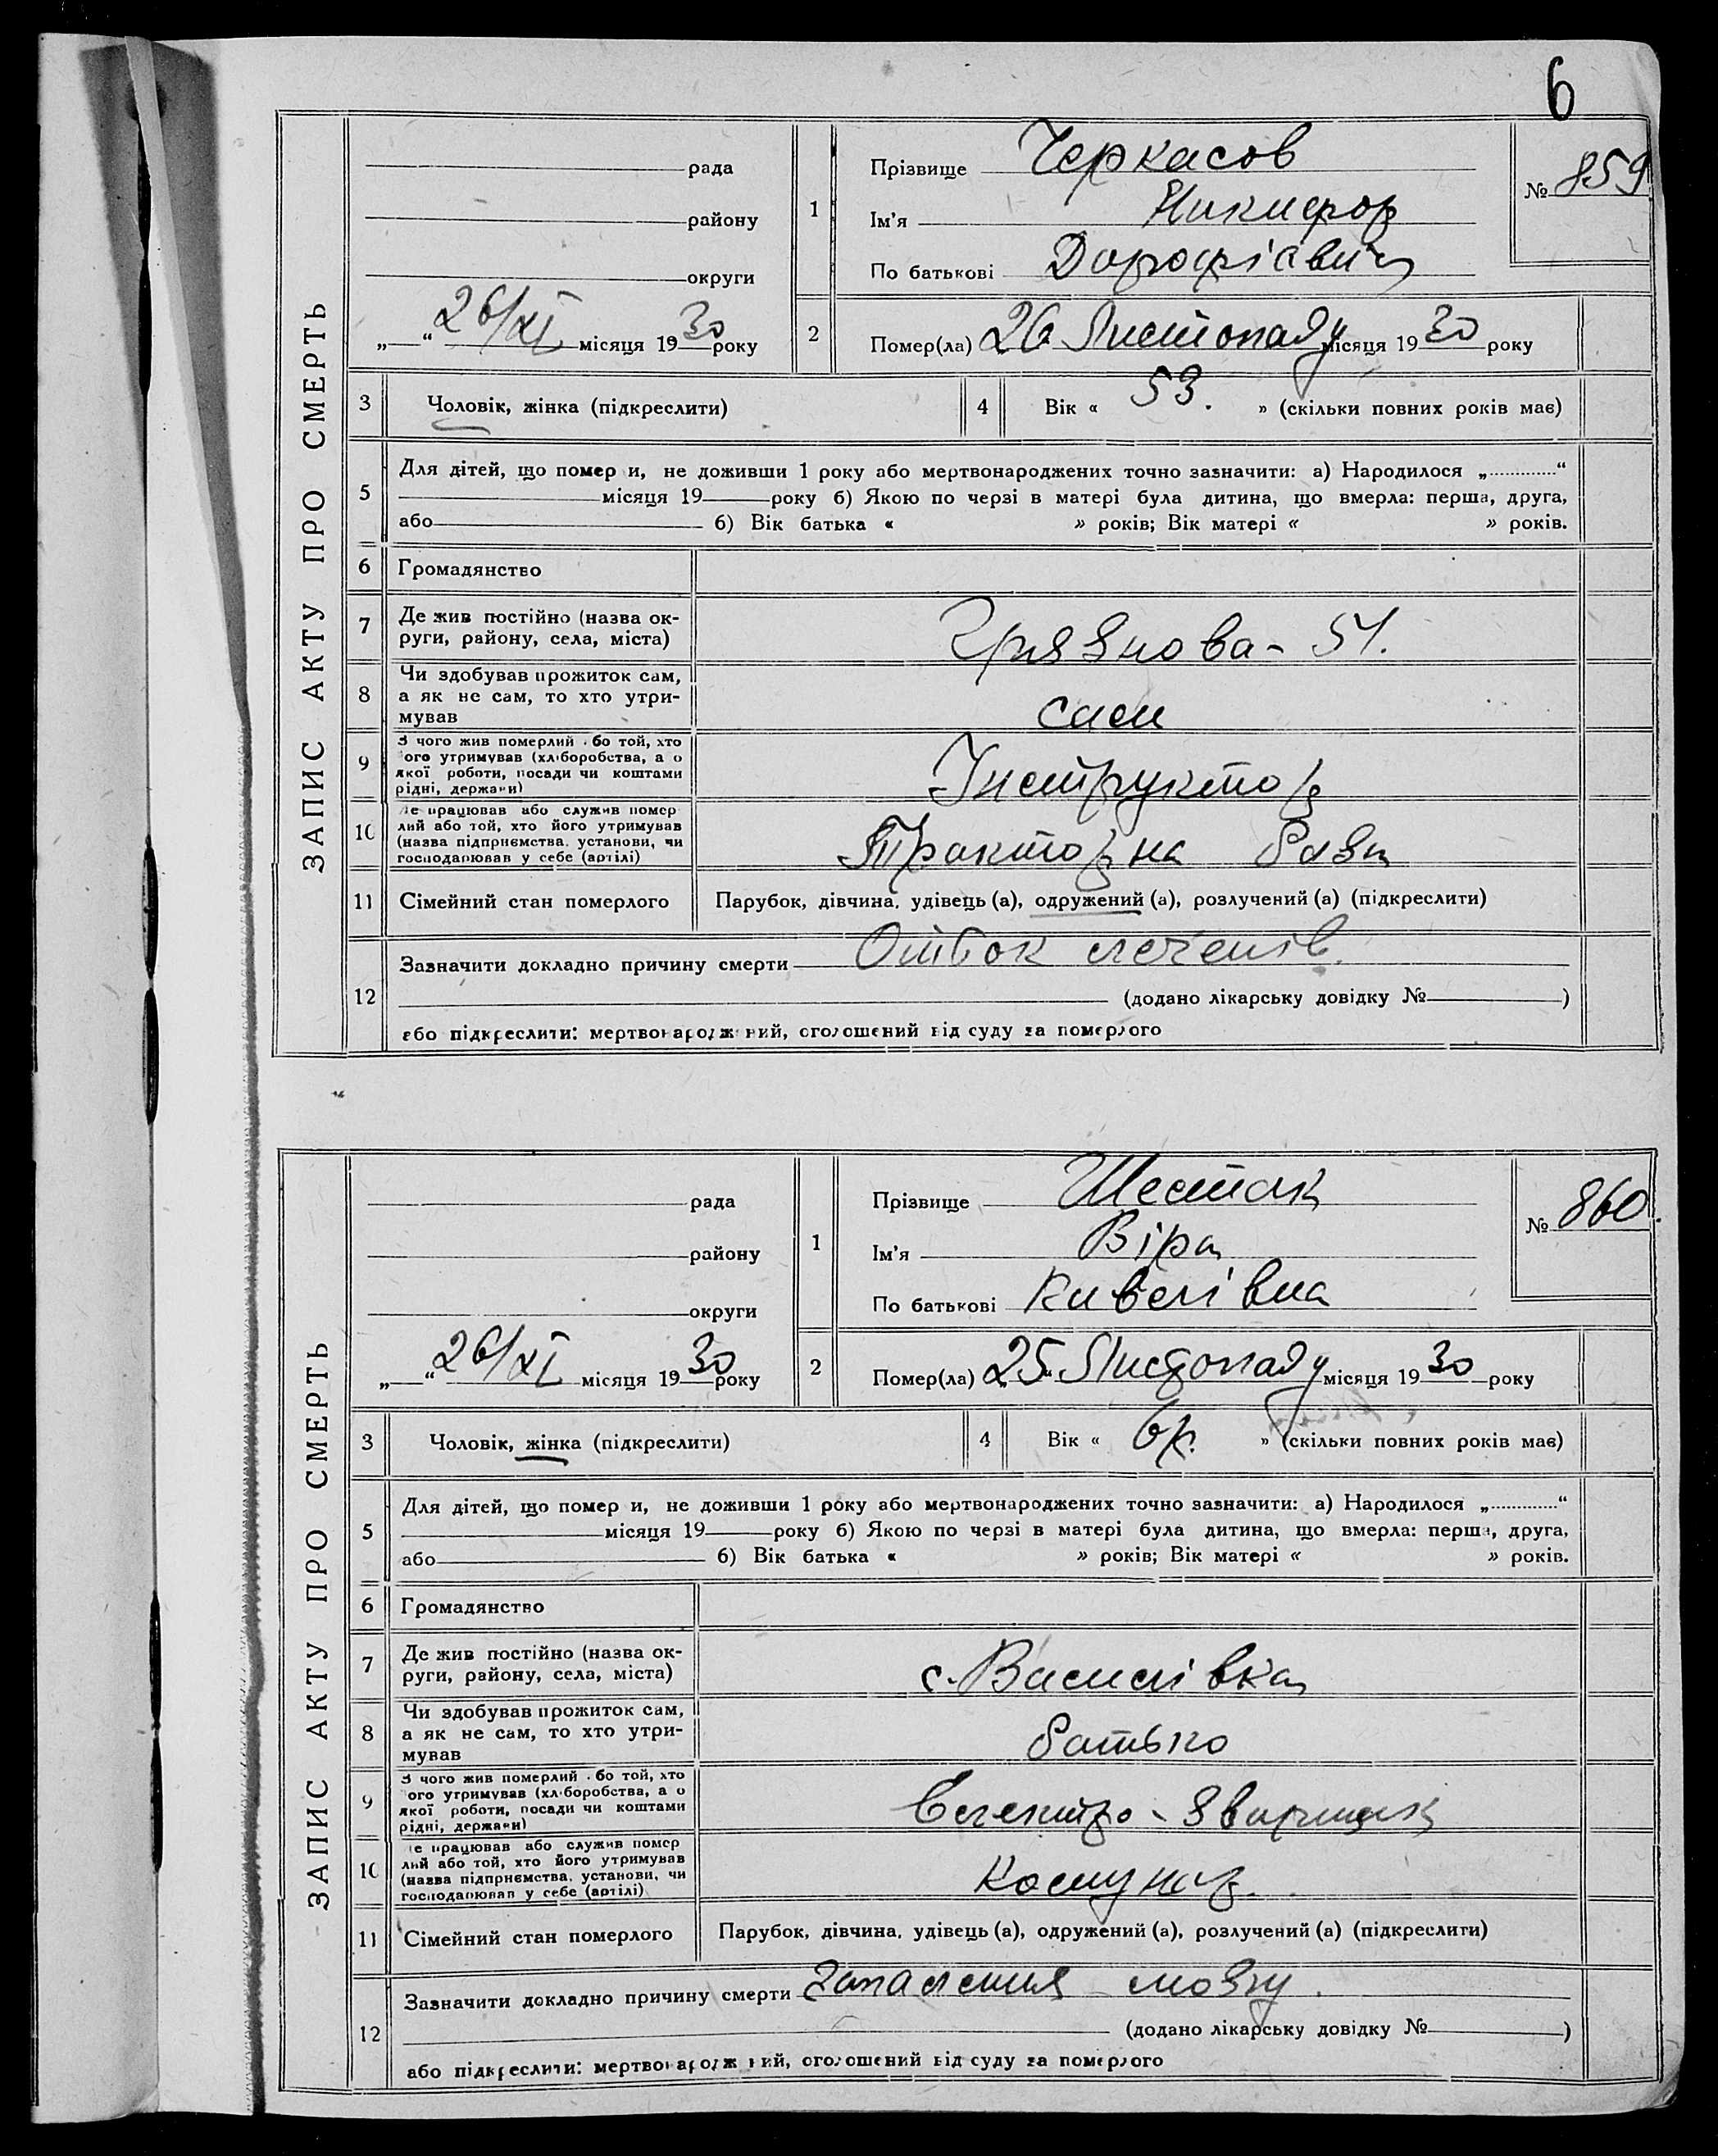 6
ЗАПИС АКТУ ПРО СМЕРТЬ
рада
району
округи
26/XI місяця 1930 року
1
Прізвище Черкасов
Ім'я Никифор
По батькові Дорофієвич
№ 859
2
Помер(ла) 26 Листопаду місяця 1930 року
3
Чоловік, жінка (підкреслити)
4
Вік « 53. » (скільки повних років має)
5
Для дітей, що помер и, не доживши 1 року або мертвонароджених точно зазначити: а) Народилося „............“
місяця 19 року б) Якою по черзі в матері була дитина, що вмерла: перша, друга,
або б) Вік батька « » років; Вік матері « » років.
6
Громадянство
7
Де жив постійно (назва ок-
руги, району, села, міста)
Грязнова - 51.
8
Чи здобував прожиток сам,
а як не сам, то хто утри-
мував
сам
9
З чого жив померлий бо той, хто
ого утримував (хліборобства, а о
якої роботи, посади чи коштами
рідні, держави)
Інструктор
10
е працював або служив помер
лий або той, хто його утримував
(назва підприємства, установи, чи
господарював у себе (артілі)
Тракторна база
11
Сімейний стан померлого
Парубок, дівчина, удівець (а), одружений (а), розлучений (а) (підкреслити)
12
Зазначити докладно причину смерти Отбок легенів.
(додано лікарську довідку № )
або підкреслити: мертвонароджений, оголошений від суду за померлого
ЗАПИС АКТУ ПРО СМЕРТЬ
рада
району
округи
26/XI місяця 1930 року
1
Прізвище Шестак
Ім'я Віра
По батькові
№ 860.
2
Помер(ла) 25 Листопаду місяця 1930 року
3
Чоловік, жінка (підкреслити)
4
Вік « 6р. » (скільки повних років має)
5
Для дітей, що помер и, не доживши 1 року або мертвонароджених точно зазначити: а) Народилося „............“
місяця 19 року б) Якою по черзі в матері була дитина, що вмерла: перша, друга,
або б) Вік батька « » років; Вік матері « » років.
6
Громадянство
7
Де жив постійно (назва ок-
руги, району, села, міста)
с. Василівка
8
Чи здобував прожиток сам,
а як не сам, то хто утри-
мував
батько
9
З чого жив померлий бо той, хто
ого утримував (хліборобства, а о
якої роботи, посади чи коштами
рідні, держави)
Електро-зварщик
10
е працював або служив помер
лий або той, хто його утримував
(назва підприємства, установи, чи
господарював у себе (артілі)
Комунар.
11
Сімейний стан померлого
Парубок, дівчина, удівець (а), одружений (а), розлучений (а) (підкреслити)
12
Зазначити докладно причину смерти Запалення мозгу.
(додано лікарську довідку № )
або підкреслити: мертвонароджений, оголошений від суду за померлого